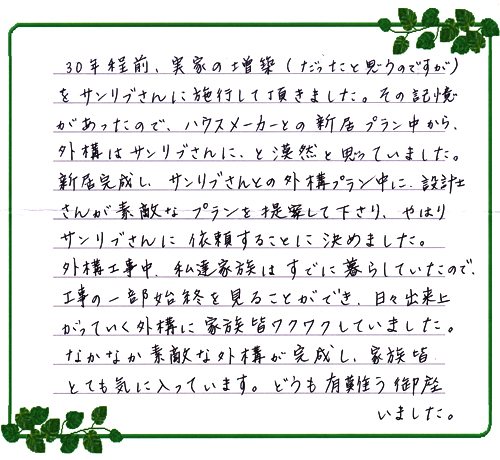 30年程前、実家の増築(だったと思うのですが)
をサンリブさんに施行して頂きました。その記憶
があったので、ハウスメーカーとの新居プラン中から、
外構はサンリブさんに、と漠然と思っていました。
新居完成し、サンリブさんとの外構プラン中に、設計士
さんが素敵なプランを提案して下さり、やはり
サンリブさんに依頼することに決めました。
外構工事中、私達家族はすでに暮らしていたので、
工事の一部始終を見ることができ、日々出来上
がっていく外構に家族皆ワクワクしていました。
なかなか素敵な外構が完成し、家族皆
とても気に入っています。どうも有難う御座
いました。